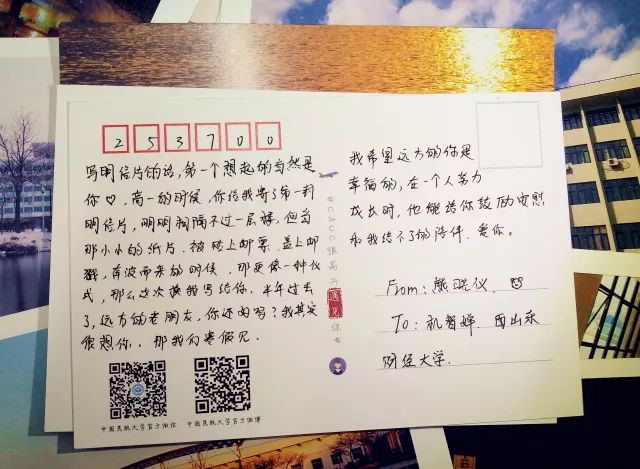 253700
写明信片的话，第一个想起的当然是
你♡，高一的时候，你给我寄了第一封
明信片，明明相隔不过一层楼，但当
那小小的纸片，被贴上邮票，盖上邮
戳，奔波而来的时候，那更像一种仪
式，那么这次换我写给你。半年过去
了，远方的老朋友，你还好吗？我其实
很想你，那我们寒假见。
中国民航大学官方微信
中国民航大学官方微博
#CAUC很高兴遇见你#
我希望远方的你是
幸福的，在一个人努力
成长时，他能给你鼓励安慰
和我给不了的陪伴。爱你。
From：熊晓仪．
To：智婵．山东
财经大学．